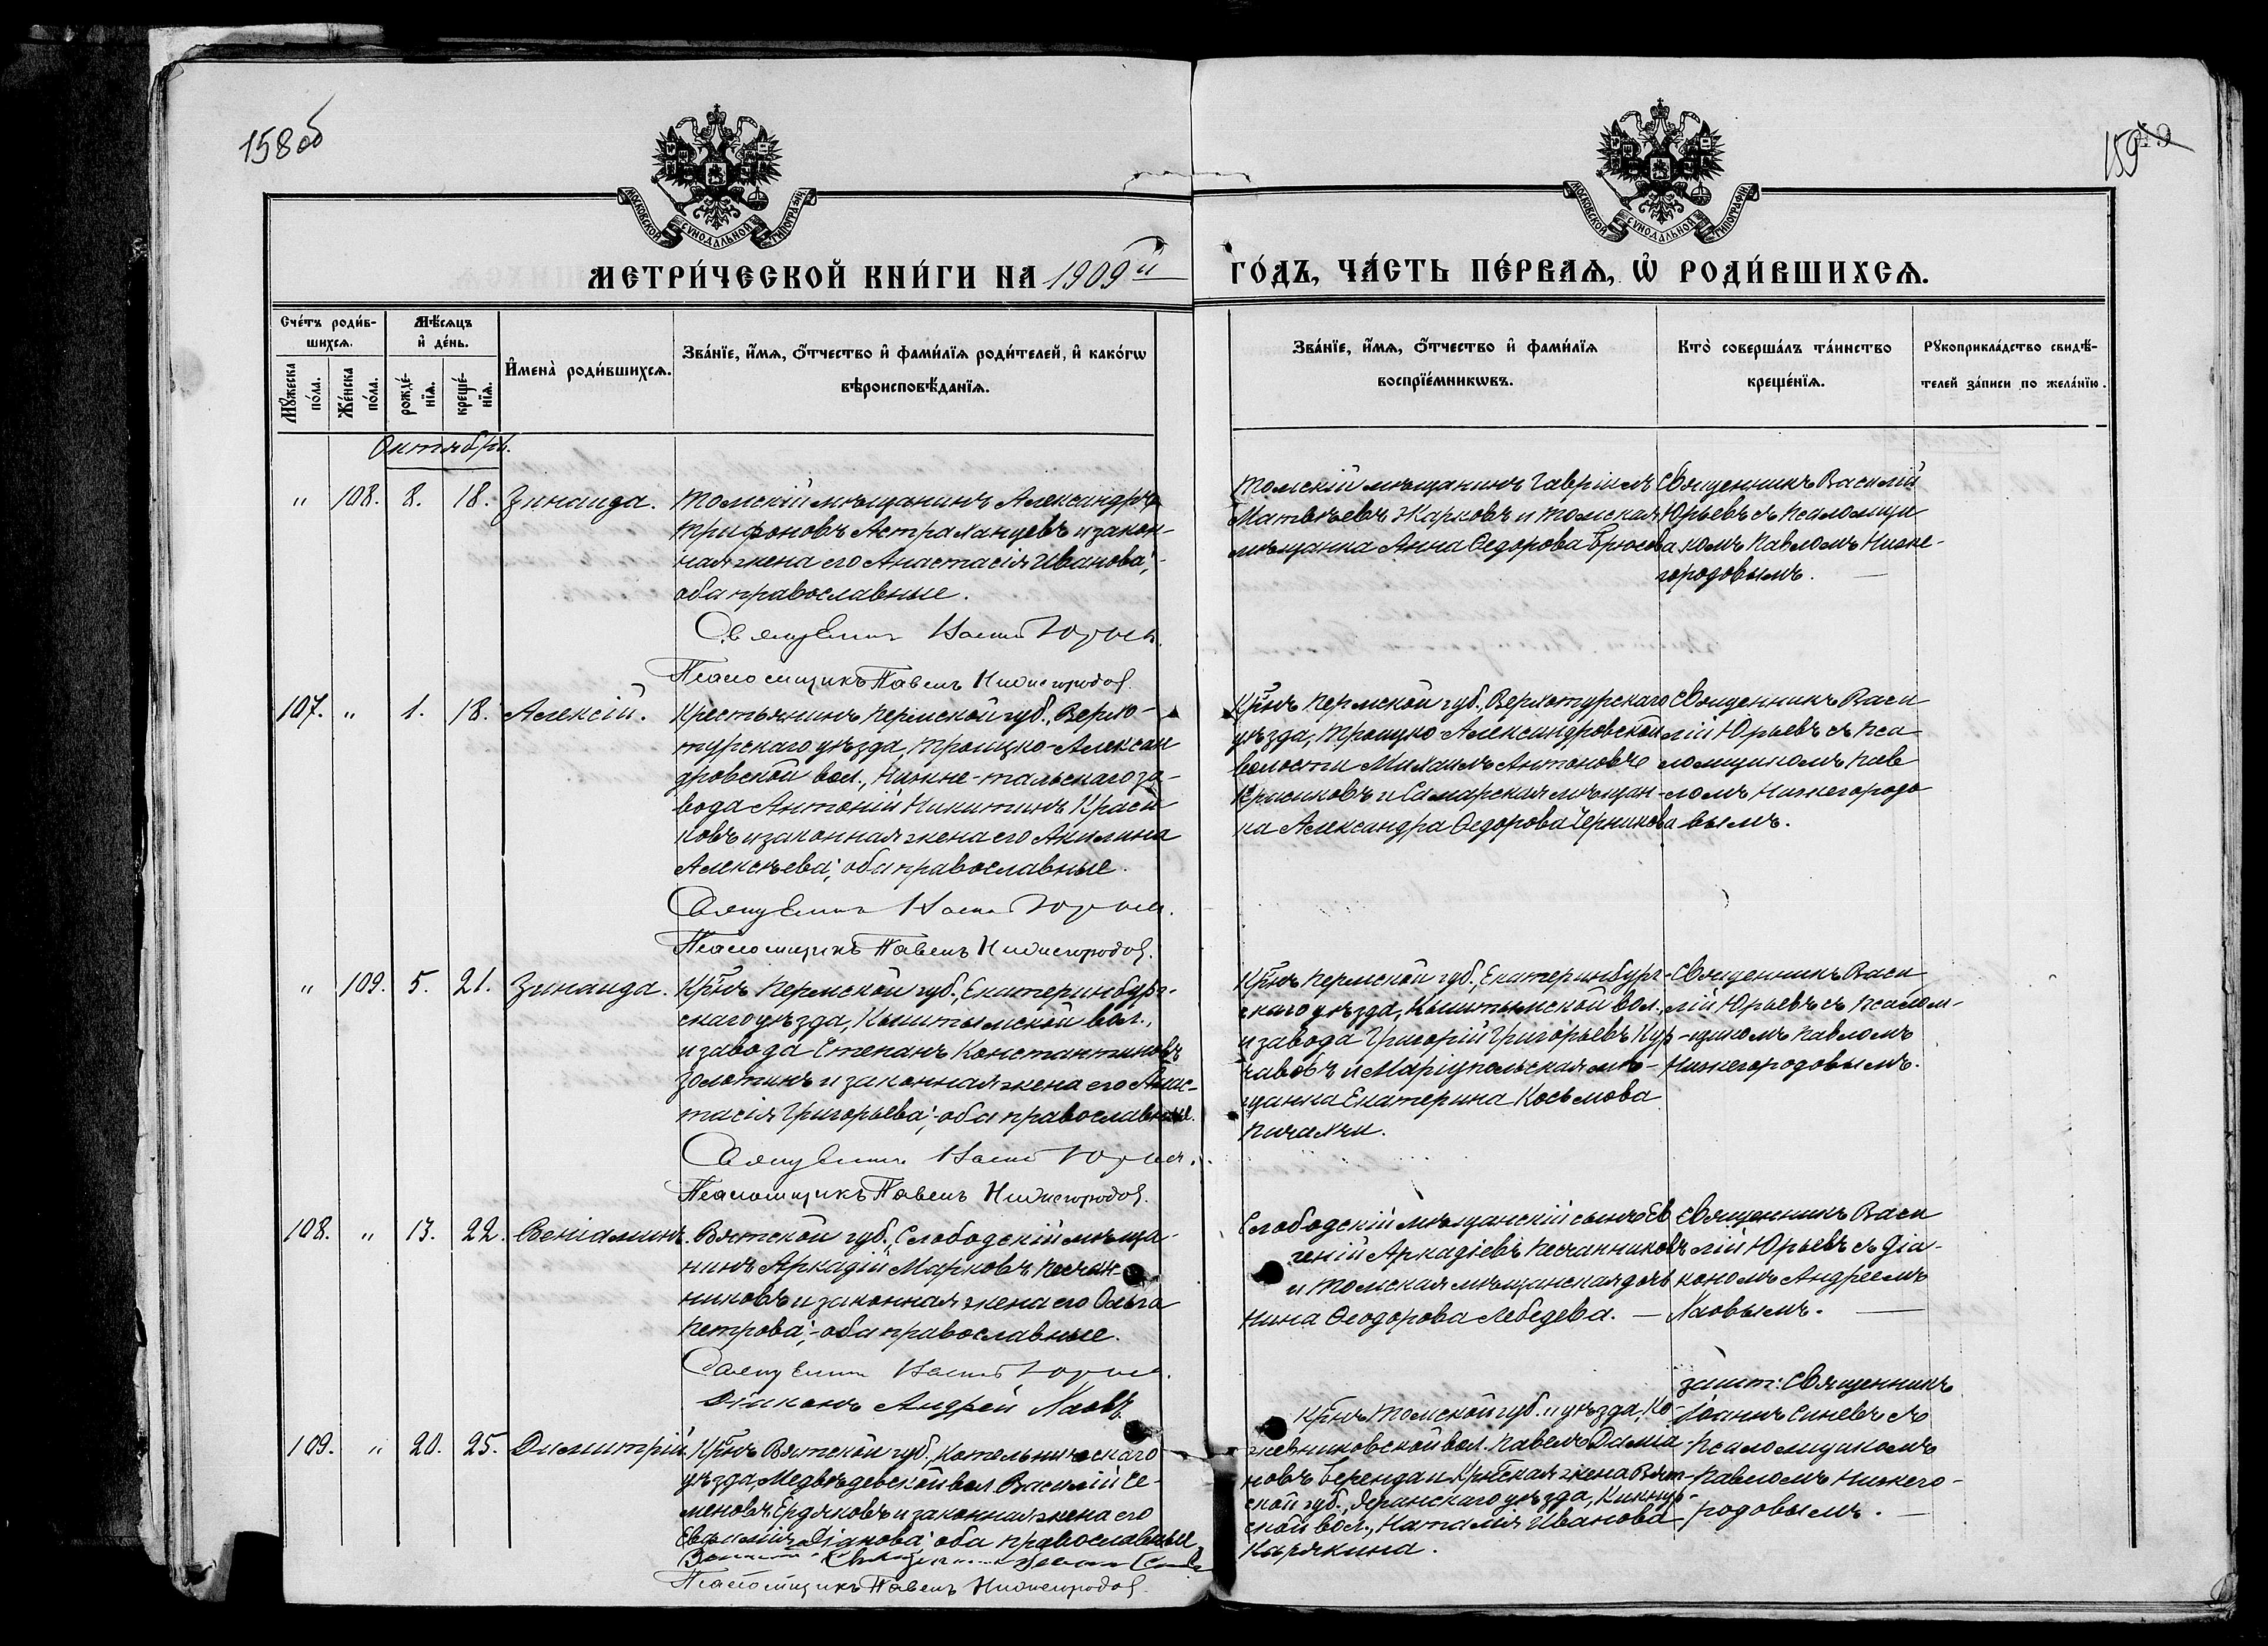 158об
159
МОСКОВСКОЙ СѴНОДАЛЬНОЙ ТИПОГРАФІИ
МОСКОВСКОЙ СѴНОДАЛЬНОЙ ТИПОГРАФІИ
МЕТРИ́ЧЕСКОЙ КНИ́ГИ НА 1909й
ГО́ДЪ, ЧА́СТЬ ПЕ́РВАѦ, Ѡ҆ РОДИ́ВШИХСѦ.
Сче́тъ роди́в-
шихсѧ.
Мꙋ́жеска
по́ла.
Же́нска
по́ла.
Мѣ́сѧцъ
и҆ де́нь.
рожде́-
нїѧ.
креще́-
нїѧ.
И҆мена̀ роди́вшихсѧ.
Зва́нїе, и҆́мѧ, ѻ҆́тчество и҆ фами́лїѧ роди́телей, и҆ како́гѡ
вѣроисповѣ́данїѧ.
Зва́нїе, и҆́мѧ, ѻ҆́тчество и҆ фами́лїѧ
воспрїе́мникѡвъ.
Кто̀ соверша́лъ та́инство
креще́нїѧ.
Рꙋкоприкла́дство свидѣ́-
телей за́писи по жела́нїю.
Октябрь.
" 108. 8. 18. Зинаида.
Томскій мѣщанинъ Александръ
Трифоновъ Астраханцевъ и закон-
ная жена его Анастасія Иванова;
оба православные.
Псаломщикъ Павелъ Нижегородов
Томскій мѣщанинъ Гавріилъ
Матвѣевъ Жарковъ и томская
мѣщанка Анна Ѳедорова Брюсова
Священникъ Василій
Юрьевъ съ псаломщи
комъ Павломъ Ниже-
городовымъ.
107. " 1. 18. Алексій.
Крестьянинъ Пермской губ., Верхо-
турскаго уѣзда, Троицко-Алексан
дровской вол., Нижне-тагильскаго за-
вода Антоній Никитинъ Краси
ковъ и законная жена его Акилина
Алексѣева; оба православные.
Псаломщикъ Павелъ Нижегородов
Кр-нъ Пермской губ., Верхотурскаго
уѣзда, Троицко-Александровской
волости Михаилъ Антоновъ
Красиковъ и Самарская мѣщан-
ка Александра Ѳедорова Черникова
Священникъ Васи
лій Юрьевъ съ пса
ломщикомъ Пав
ломъ Нижегородо
вымъ.
" 109. 5. 21. Зинаида.
Кр-нъ Пермской губ., Екатеринбург-
скаго уѣзда, Кыштымской вол.,
и завода Степанъ Константиновъ
Золотинъ и законная жена его Анас-
тасія Григорьева; оба православные.
Псаломщикъ Павелъ Нижегородов
Кр-нъ Пермской губ., Екатеринбург-
скаго уѣзда, Кыштымской вол.,
и завода Григорій Григорьевъ Кур-
чавовъ и Маріупольская мѣ-
щанка Екатерина Косьмова
Священникъ Васи
лій Юрьевъ съ псалом-
щикомъ Павломъ
Нижегородовымъ.
108. " 13. 22. Веніаминъ.
Вятской губ., Слободскій мѣща-
нинъ Аркадій Марковъ Песчан-
никовъ и законная жена его Ольга
Петрова; оба православные.
Діаконъ Андрей Лаовъ
Слободскій мѣщанскій сынъ Ев
геній Аркадіевъ Песчанниковъ
и томская мѣщанская дочь
Нина Ѳеодорова Лебедева.
Священникъ Васи
лій Юрьевъ съ діа-
кономъ Андреемъ
Лаовымъ.
109. " 20. 25. Димитрій.
Кр-нъ Вятской губ., Котельническаго
уѣзда, Медвѣдевской вол. Василій Се-
меновъ Ердяковъ и законная жена его
Евфимія Діанова; оба православные.
Псаломщикъ Павелъ Нижегородов
Кр-нъ Томской губ. и уѣзда, Ко-
жевниковской вол. Павелъ Дамиа
новъ Беренда и Кр-ская жена Вят-
ской губ., Яранскаго уѣзда, Кикнур-
ской вол., Наталія Иванова
Карякина.
зашт: Священникъ
Іоаннъ Синевъ съ
псаломщикомъ
Павломъ Нижего-
родовымъ.